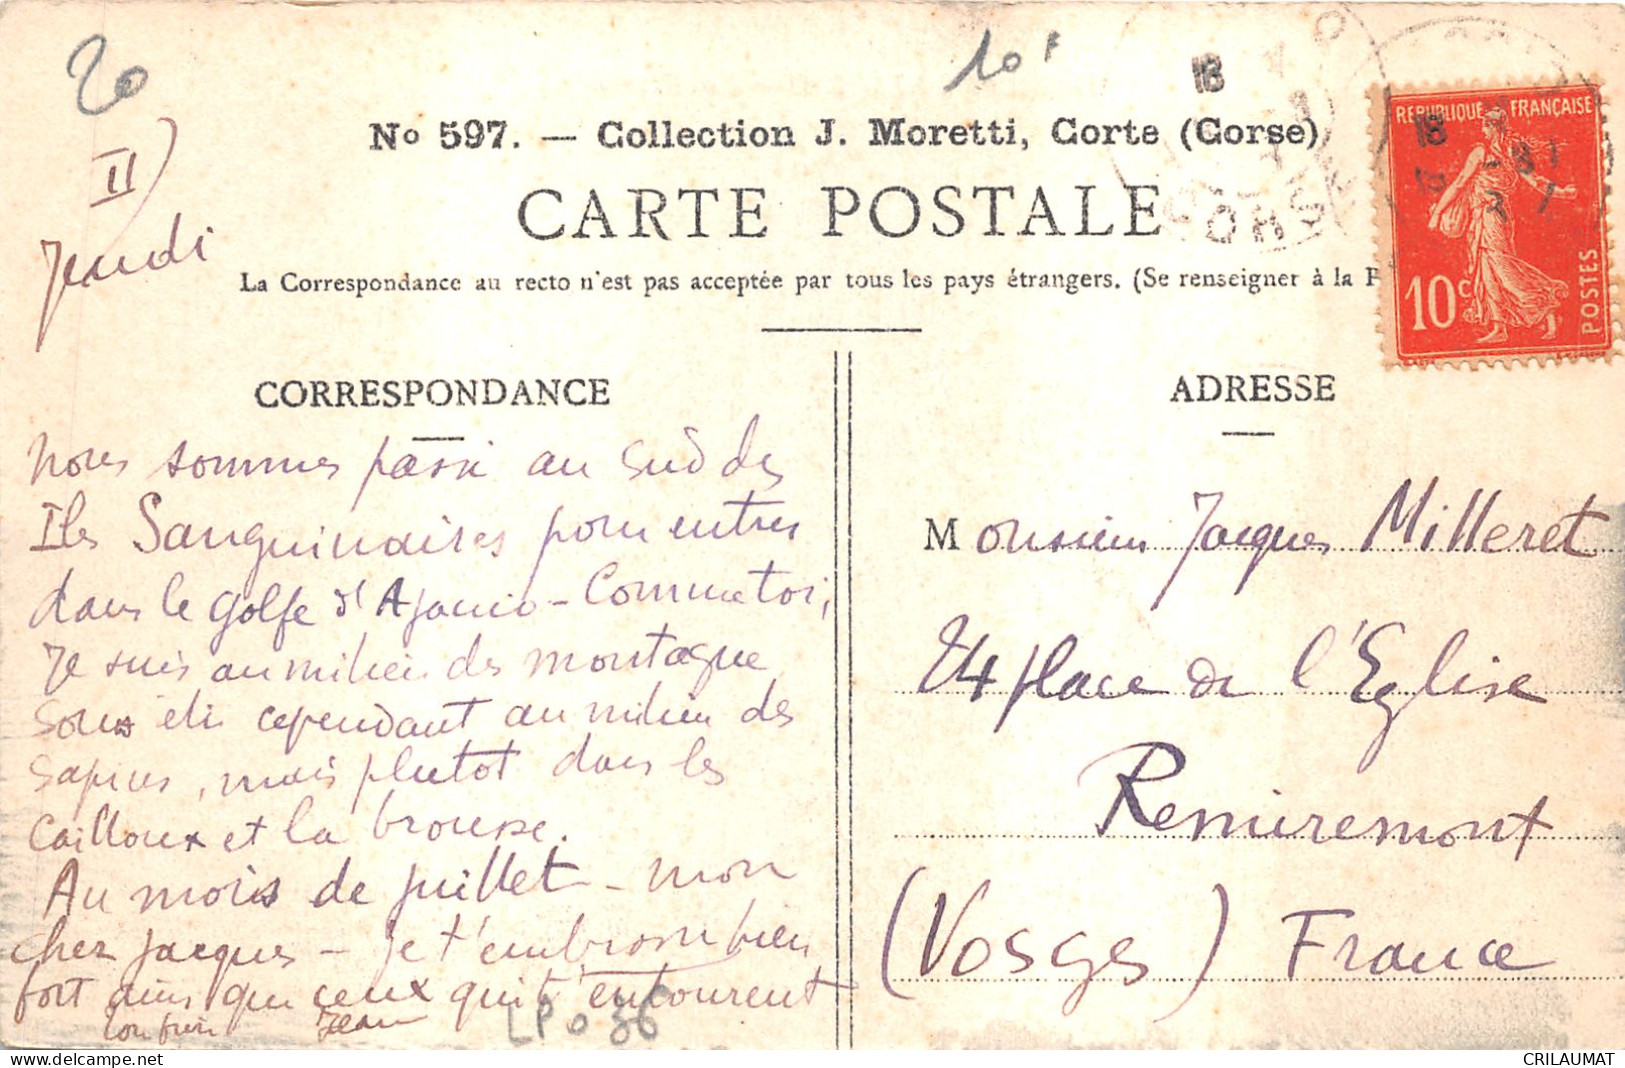 20
10F
No 597. — Collection J. Moretti, Corte (Corse)
CARTE POSTALE
La Correspondance au recto n'est pas acceptée par tous les pays étrangers. (Se renseigner à la P
REPUBLIQUE FRANÇAISE
10c
POSTES
18
18
II)
Jeudi
CORRESPONDANCE
nous sommes passé au sud des
Iles Sanguinaires pour entrer
dans le golfe d'Ajaccio - Comme toi,
Je suis au milieu des montagne
sous cependant au milieu des
sapins, mais plutot dans les
cailloux et la brousse.
Au mois de juillet - mon
cher Jacques - je t'embrasse bien
fort ainsi que ceux qui t'entourent
ton frère Jean
LP 036
ADRESSE
Monsieur Jacques Milleret
24 place de l'Eglise
Remiremont
(Vosges) France
CRILAUMAT